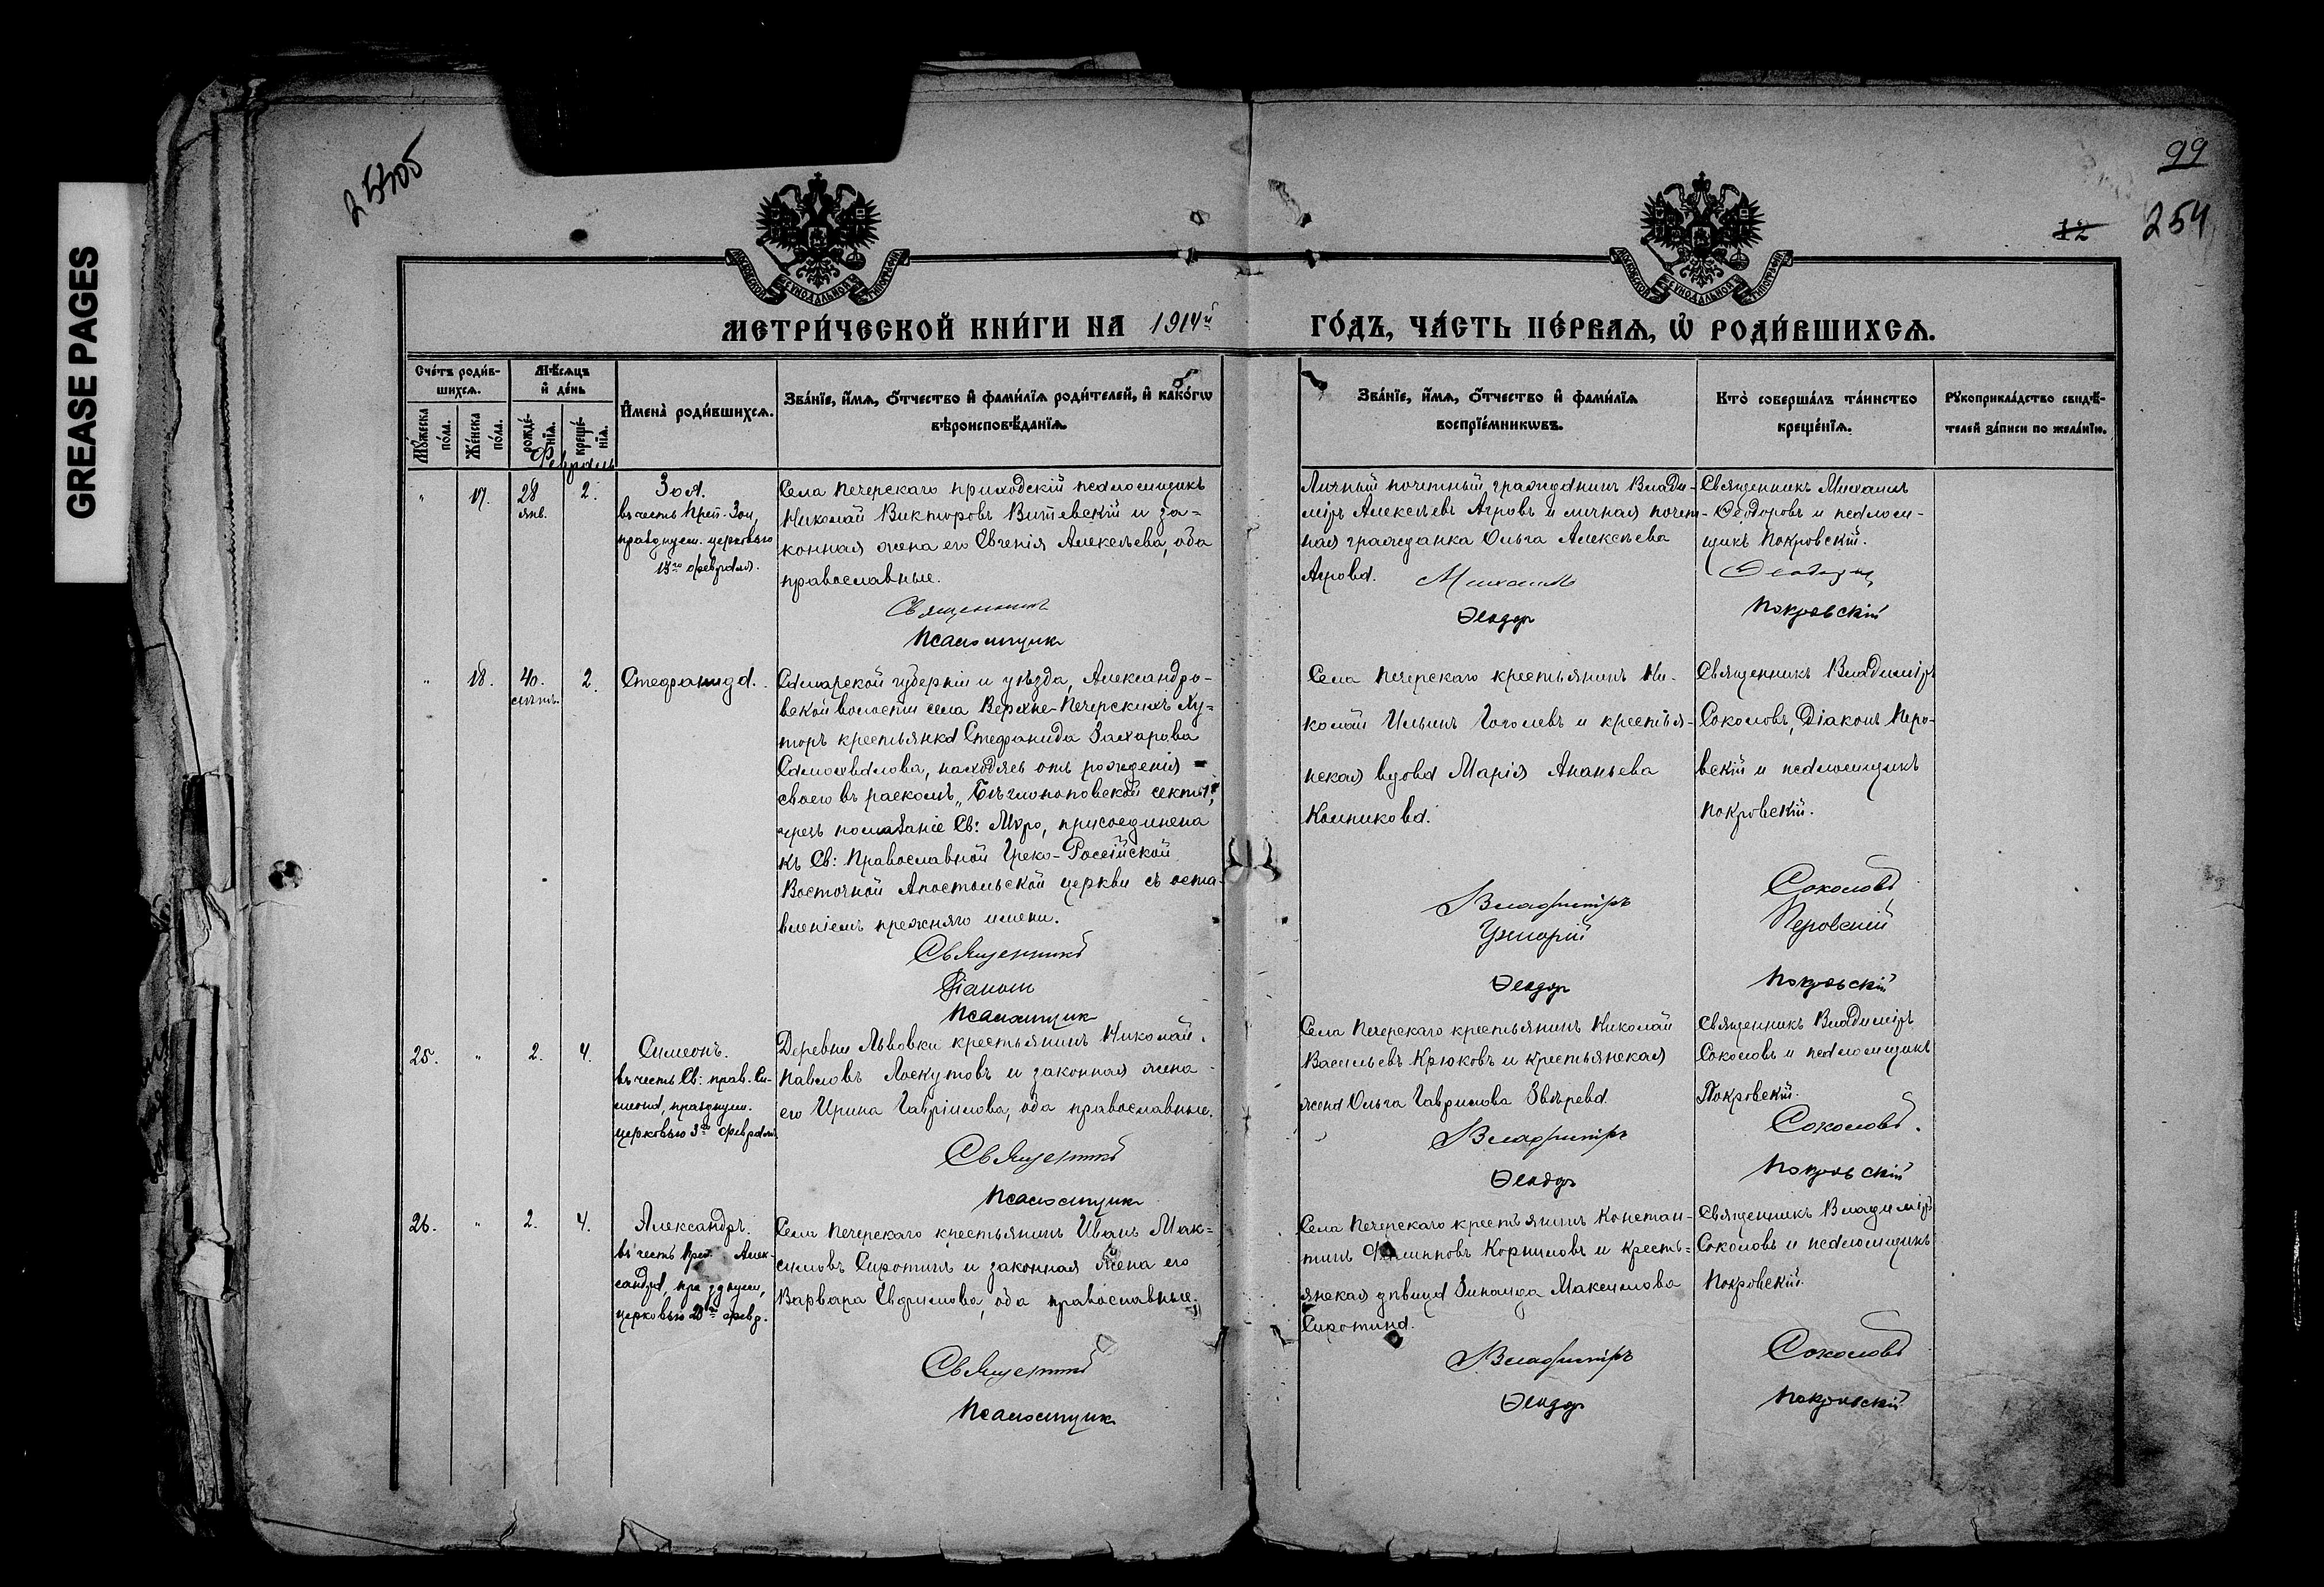 GREASE PAGES
99
12
254
МОСКОВСКОЙ СУНОДАЛЬНОЙ ТИПОГРАФІИ
МОСКОВСКОЙ СУНОДАЛЬНОЙ ТИПОГРАФІИ
МЕТРИ́ЧЕСКОЙ КНИ́ГИ НА 1914й ГО́ДЪ, ЧА́СТЬ ПЕ́РВАѦ, Ѡ҆ РОДИ́ВШИХСѦ.
Сче́тъ роди́в-
шихсѧ.
Мѣ́сѧцъ
и҆ де́нь
Мꙋ́жеска по́ла.
Же́нска по́ла.
рожде́-
нїѧ.
креще́-
нїѧ.
И҆мена̀ роди́вшихсѧ.
Зва́нїе, и҆́мѧ, ѻ҆́тчество и҆ фами́лїѧ роди́телей, и҆ како́гѡ
вѣроисповѣ́данїѧ.
Зва́нїе, и҆́мѧ, ѻ҆́тчество и҆ фами́лїѧ
воспрїе́мникѡвъ.
Кто̀ соверша́лъ та́инство
креще́нїѧ.
Рꙋкоприкла́дство свидѣ́-
телей за́писи по жела́нїю.
Февраль
"
17.
28
янв.
2.
Зоя.
въ честь Преп. Зои,
празднуем. церковью
13го февраля.
Села Печерскаго приходскій псаломщикъ
Николай Викторовъ Витевскій и за-
конная жена его Евгенія Алексѣева, оба
православные.
Священникъ
Псаломщикъ
Личный почетный гражданинъ Влади-
міръ Алексѣевъ Агровъ и личная почет-
ная гражданка Ольга Алексѣева
Агрова.
Михаилъ
Ѳеодоръ
Священникъ Михаилъ
Ѳеодоровъ и псалом-
щикъ Покровскій.
Покровскій
"
18.
40.
лѣтъ.
2.
Стефанида.
Самарской губерніи и уѣзда, Александро-
вской волости села Верхне-Печерскихъ Ху-
торъ крестьянка Стефанида Захарова
Самохвалова, находясь отъ рожденія
своего въ расколѣ „Бѣглопоповской секты",
чрезъ помазаніе Св: Мѵро, присоединена
къ Св: Православной Греко-Россійской
Восточной Апостольской церкви съ оста-
вленіемъ прежняго имени.
Священникъ
Діаконъ
Псаломщикъ
Села Печерскаго крестьянинъ Ни-
колай Ильинъ Гоголевъ и крестья-
нская вдова Марія Ананьева
Владиміръ
Ѳеодоръ
Священникъ Владиміръ
Соколовъ, Діаконъ Перо-
вскій и псаломщикъ
Покровскій.
Соколовъ
Перовскій
Покровскій
25.
"
2.
4.
Симеонъ.
въ честь Св: прав. Си-
меона, празднуем.
церковью 3го февраля.
Деревни Львовки крестьянинъ Николай
Павловъ Лоскутовъ и законная жена
его Ирина Гавріилова, оба православные.
Священникъ
Псаломщикъ
Села Печерскаго крестьянинъ Николай
Васильевъ Крюковъ и крестьянская
жена Ольга Гаврилова Звѣрева.
Владиміръ
Ѳеодоръ
Священникъ Владиміръ
Соколовъ и псаломщикъ
Покровскій.
Соколовъ.
Покровскій
26.
"
2.
4.
Александръ.
въ честь Преп. Алек-
сандра, празднуем,
церковью 23го февр.
Села Печерскаго крестьянинъ Иванъ Мак-
симовъ Сиротинъ и законная жена его
Варвара Ефимова, оба православные.
Священникъ
Псаломщикъ
Села Печерскаго крестьянинъ Констан-
тинъ Филипповъ Корниловъ и кресть-
янская дѣвица Зинаида Максимова
Сиротина.
Владиміръ
Ѳеодоръ
Священникъ Владиміръ
Соколовъ и псаломщикъ
Покровскій.
Соколовъ
Покровскій